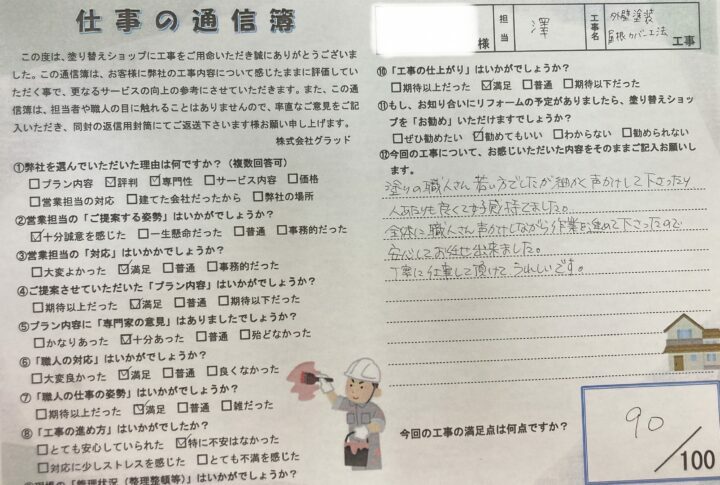 仕事の通信簿
この度は、塗り替えショップに工事をご用命いただき誠にありがとうございま
した。この通信簿は、お客様に弊社の工事内容について感じたままに評価してい
ただく事で、更なるサービスの向上の参考にさせていただきます。また、この通
信簿は、担当者や職人の目に触れることはありませんので、率直なご意見をご記
入いただき、同封の返信用封筒にてご返送下さいます様お願い申し上げます。
株式会社グラッド
①弊社を選んでいただいた理由は何ですか？（複数回答可）
□プラン内容 ☑評判 ☑専門性 □サービス内容 □価格
□営業担当の対応 □建てた会社だったから □弊社の場所
②営業担当の「ご提案する姿勢」はいかがでしょうか？
☑十分誠意を感じた □一生懸命だった □普通 □事務的だった
③営業担当の「対応」はいかかでしょうか？
□大変よかった ☑満足 □普通 □事務的だった
④ご提案させていただいた「プラン内容」はいかがでしょうか？
□期待以上だった ☑満足 □普通 □期待以下だった
⑤プラン内容に「専門家の意見」はありましたでしょうか？
□かなりあった ☑十分あった □普通 □殆どなかった
⑥「職人の対応」はいかがでしょうか？
□大変良かった ☑満足 □普通 □良くなかった
⑦「職人の仕事の姿勢」はいかがでしょうか？
□期待以上だった ☑満足 □普通 □雑だった
⑧「工事の進め方」はいかがでしたか？
□とても安心していられた ☑特に不安はなかった
□対応に少しストレスを感じた □とても不満を感じた
「管理状況（整理整頓等）」はいかがでしょうか？
様 担当 澤 工事名 外壁塗装
屋根カバー工法 工事
⑩「工事の仕上がり」はいかがでしょうか？
□期待以上だった ☑満足 □普通 □期待以下だった
⑪もし、お知り合いにリフォームの予定がありましたら、塗り替えショッ
プを「お勧め」いただけますでしょうか？
□ぜひ勧めたい ☑勧めてもいい □わからない □勧められない
⑫今回の工事について、お感じいただいた内容をそのままご記入お願いし
ます。
塗りの職人さん若い方でしたが細かく声かけして下さったり
人あたりも良くて好感持てました。
全体に職人さん声かけしながら作業を進めて下さったので
安心してお任せ出来ました。
丁寧に仕事して頂けてうれしいです。
今回の工事の満足点は何点ですか？
90
/100